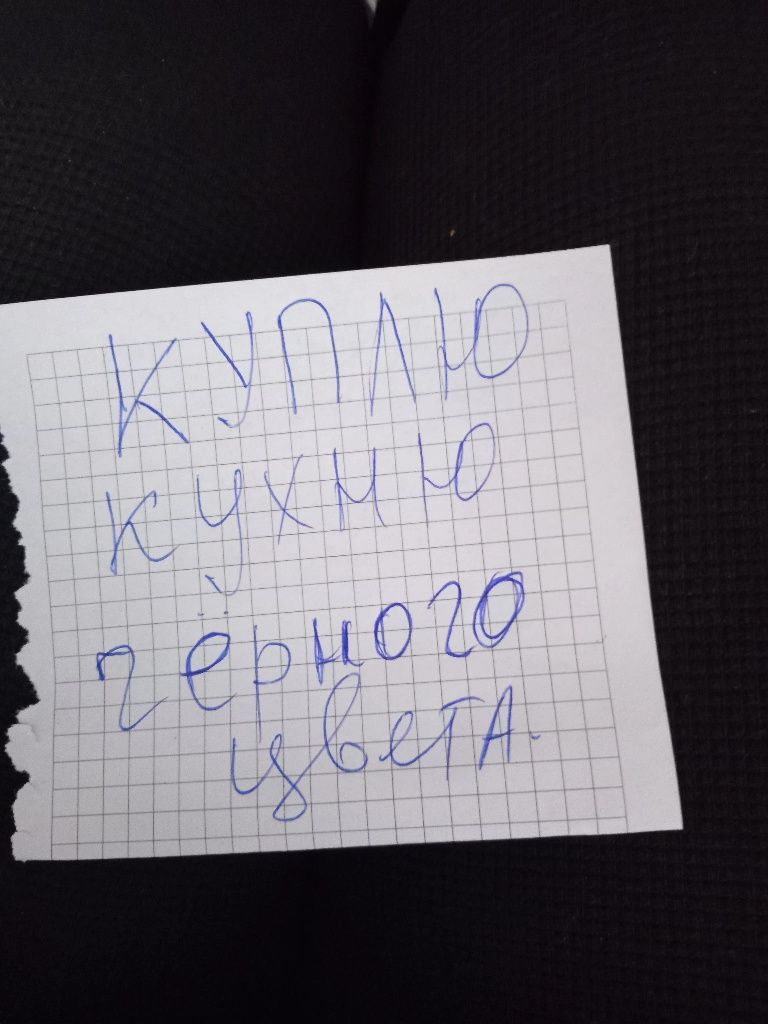 КУПЛЮ
кухню
чёрного
цвета.